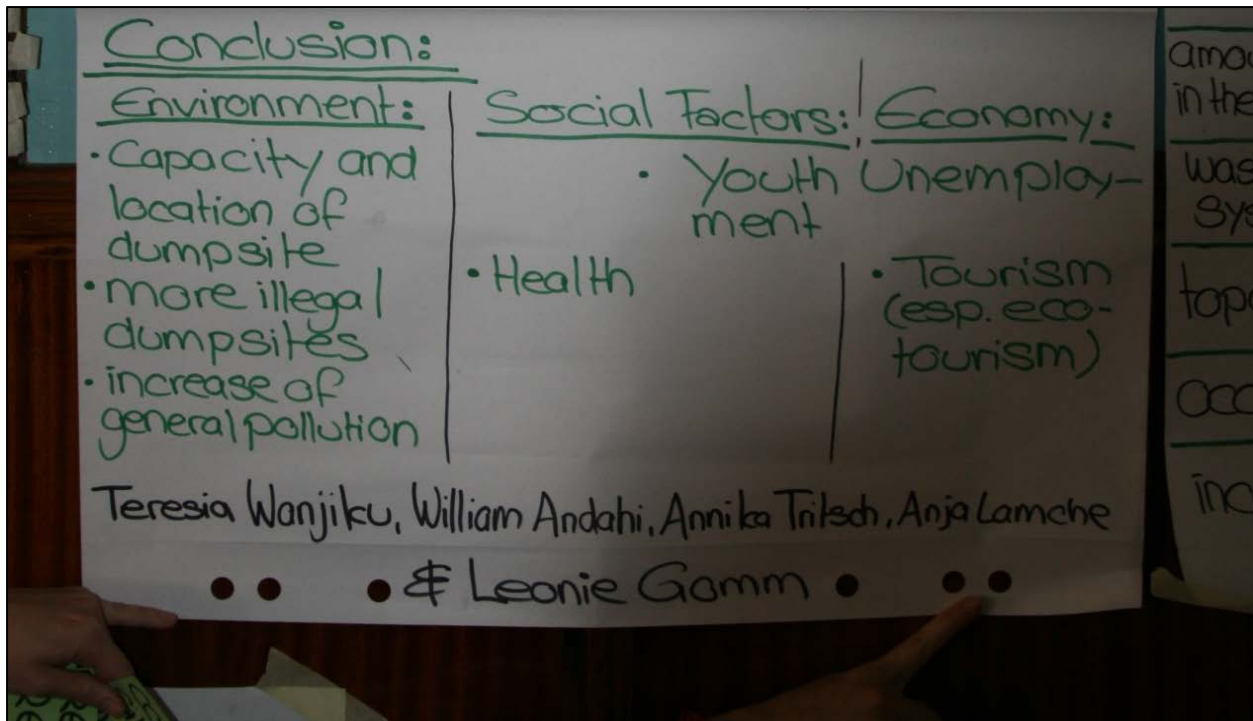 Conclusion:
Environment:
• Capacity and
location of
dumpsite
• more illegal
dumpsites
• increase of
general pollution
Social Factors:
Economy:
• Youth Unemploy-
ment
• Health
• Tourism
(esp. eco-
tourism)
Teresia Wanjiku, William Andahi, Annika Tritsch, Anja Lamche
& Leonie Gomm
in the